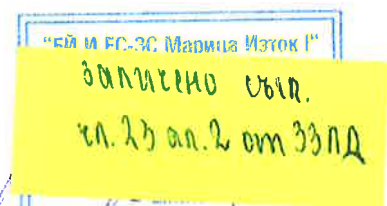 "ЕЙ И ЕС-3С Марица Изток I"
заличено съгл.
чл. 23 ал. 2 от ЗЗЛД